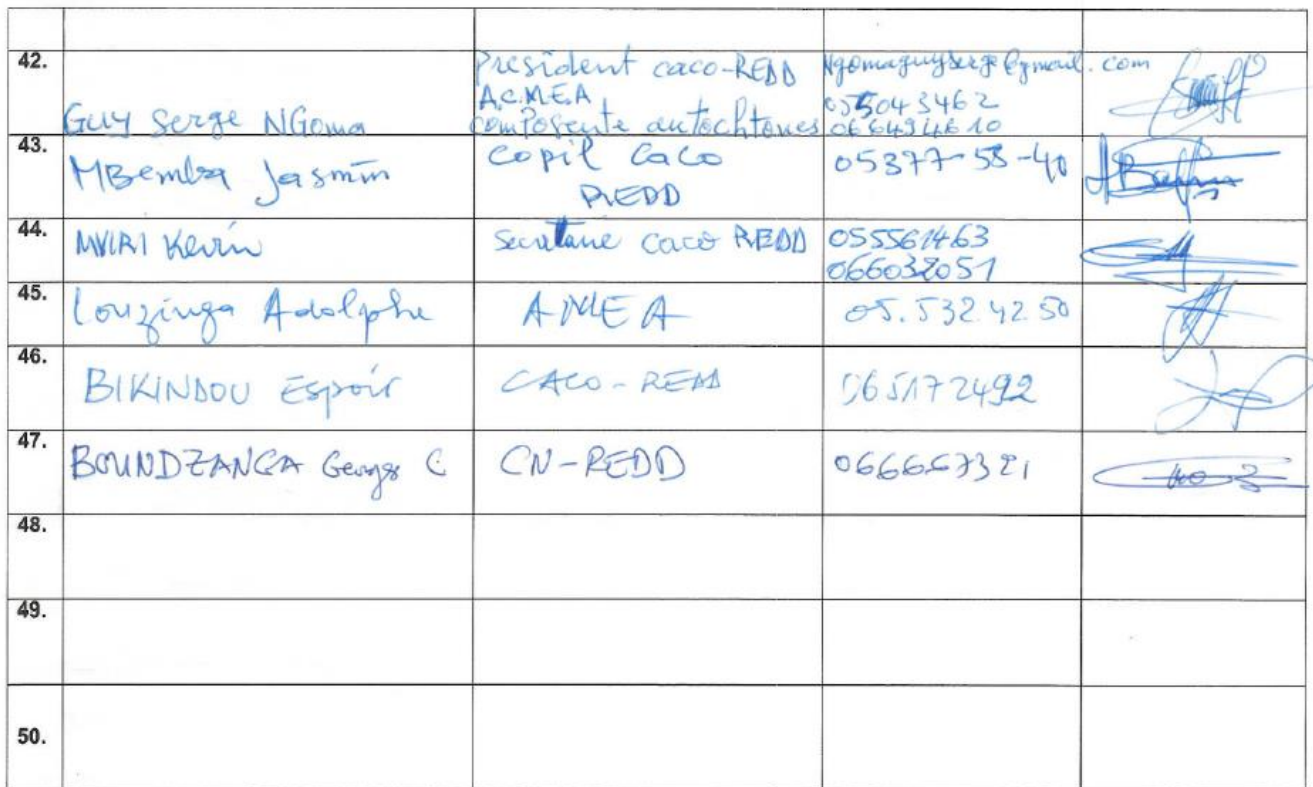 42.
GUY Serge NGoma
President caco-REDD
A.C.M.E.A
composente autochtones
Ngomaguyserge@gmail.com
055043462
066434610
43.
MBemba Jasmin
Copil CaCo
REDD
05377-58-40
44.
MVIRI Kevin
Secretaire caco REDD
055561463
066032051
45.
Louzinga Adolphe
AMEA
05.532.42.50
46.
BIKINDOU Espoir
CACO-REDD
065172492
47.
BOUNDZANGA Georges C
CN-REDD
066667321
48.
49.
50.